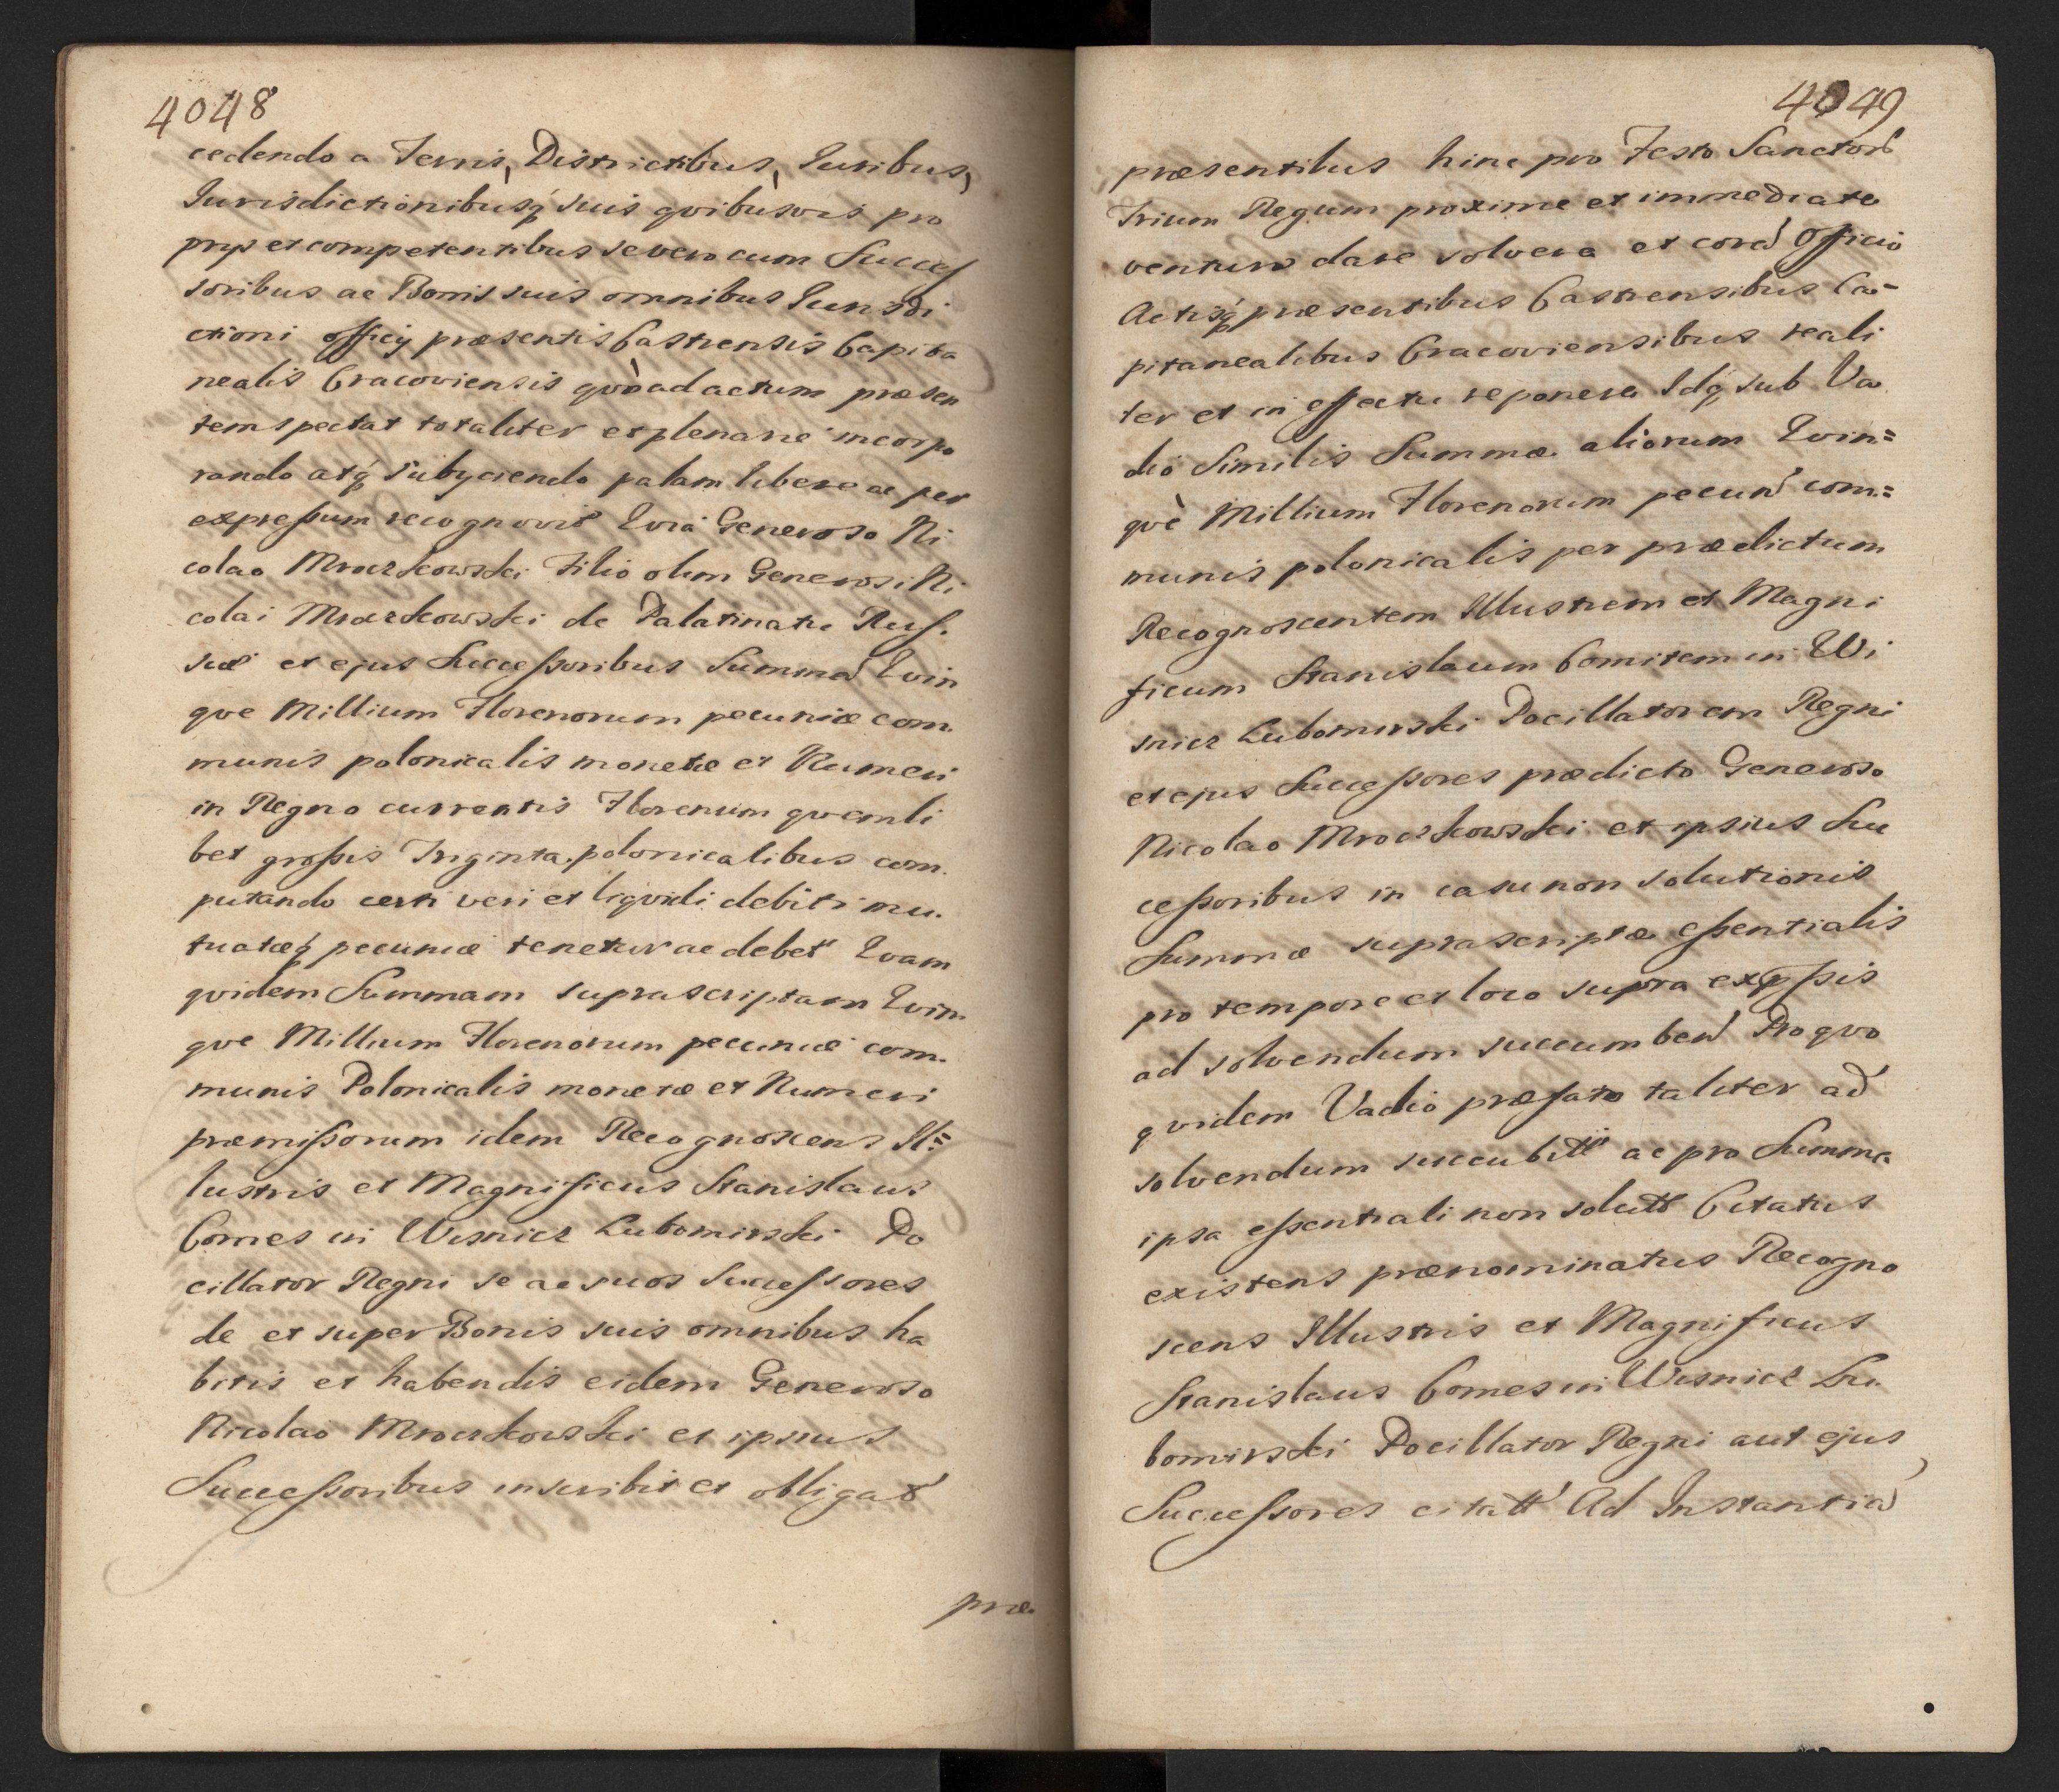 4048
cedendo a Terris, Districtibus, Iuribus,
Iurisdictionibusq́ suis qvibusvis pro
prijs et competentibus se vero cum Succes
soribus ac Bonis suis omnibus Iurisdi
ctioni officij præsentis Castrensis Capita
nealis Cracoviensis qvò ad actum præsen
tem spectat totaliter et plenarie incorpo
rando atq́ subyciendo palam libere ac per
expressum recognovit Qvia Generoso Ni
colao Mroczkowski Filio olim Generosi Ni
colai Mroczkowski de Palatinatu Rus.
siæ et ejus Successoribus Summā Qvin
qve Millium Florenorum pecuniæ com.
munis polonicalis monetæ et Numeri
in Regno currentis Florenum qvemli
bet grossis Triginta polonicalibus com.
putando certi veri et liqvidi debiti mu.
tuatæq́ pecuniæ tenetur ac debet Qvam
qvidem Summam suprascriptam Qvin
qve Millium Florenorum pecuniæ com.
munis Polonicalis monetæ et Numeri
præmissorum idem Recognoscens Il=
lustris et Magnificus Stanislaus
Comes in Wisnicz Lubomirski Po
cillator Regni se ac suos Successores
de et super Bonis suis omnibus ha
bitis et habendis eidem Generoso
Nicolao Mroczkowski et ipsius
Successoribus inscribit et obligat
præ.
4049
præsentibus hinc pro Festo Sanctor
Trium Regum proxime et immediate
venturo dare solvere et corā Officio
Actisq́ præsentibus Castrensibus Ca-
pitanealibus Cracoviensibus reali
ter et in effectu reponere Idq́ sub Va
dio Similis Summæ aliorum Qvin=
qvè Millium Florenorum pecun com=
munis polonicalis per prædictum
Recognoscentem Illustrem et Magni
ficum Stanislaum Comitem in Wi
snicz Lubomirski Pocillatorem Regni
et ejus Successores prædicto Generoso
Nicolao Mroczkowski et ipsius Suc
cessoribus in casu non solutionis
Summæ suprascriptæ essentialis
pro tempore et loco supra expssis
ad solvendum succumben Pro qvo
qvidem Vadio præfato taliter ad
solvendum succubitt ac pro Summa
ipsa essentiali non solutt Citatus
existens prænominatus Recogno
scens Illustris et Magnificus
Stanislaus Comes in Wisnicz Lu.
bomirski Pocillator Regni aut ejus
Successores citatt Ad Instantiā